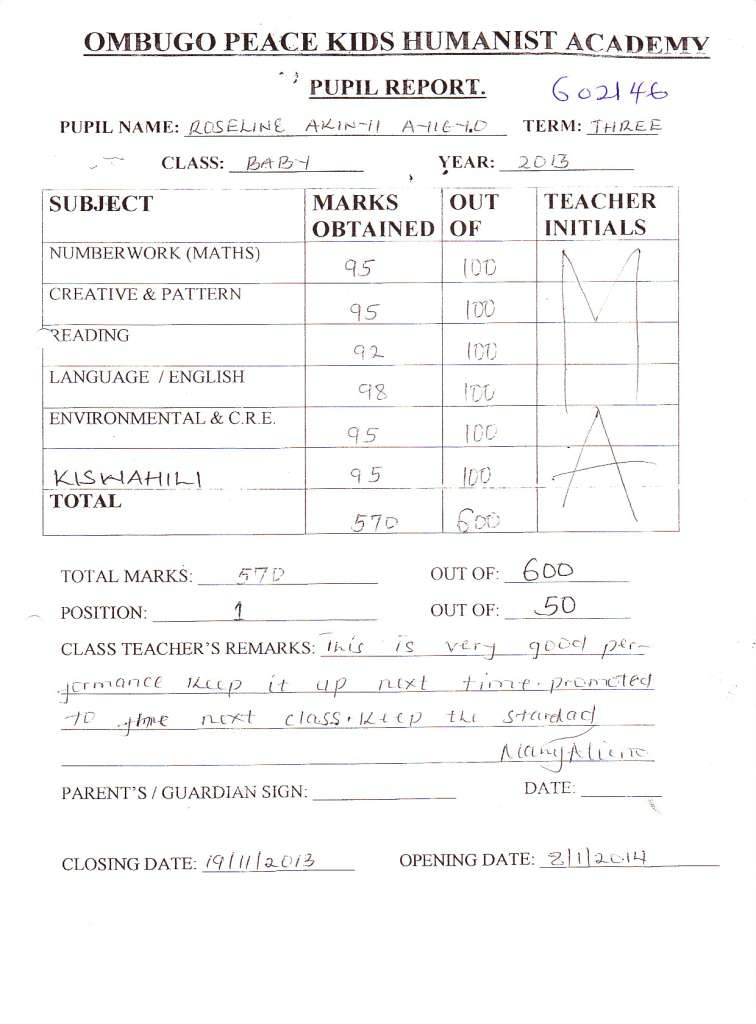 OMBUGO PEACE KIDS HUMANIST ACADEMY
PUPIL REPORT.
602146
PUPIL NAME: ROSELINE AKINYI TERM: THREE
CLASS: BABY YEAR: 2013
SUBJECT MARKS OBTAINED OUT OF TEACHER INITIALS
NUMBERWORK (MATHS) 95 100
CREATIVE & PATTERN 95 100
READING 92 100
LANGUAGE / ENGLISH 98 100
ENVIRONMENTAL & C.R.E. 95 100
KISWAHILI 95 100
TOTAL 570 600
MA
TOTAL MARKS: 570 OUT OF: 600
POSITION: 1 OUT OF: 50
CLASS TEACHER'S REMARKS: This is very good per-
formance keep it up next time. promoted
to the next class. keep the standad
Mary Atieno
PARENT'S / GUARDIAN SIGN: DATE:
CLOSING DATE: 19/11/2013 OPENING DATE: 8/1/2014